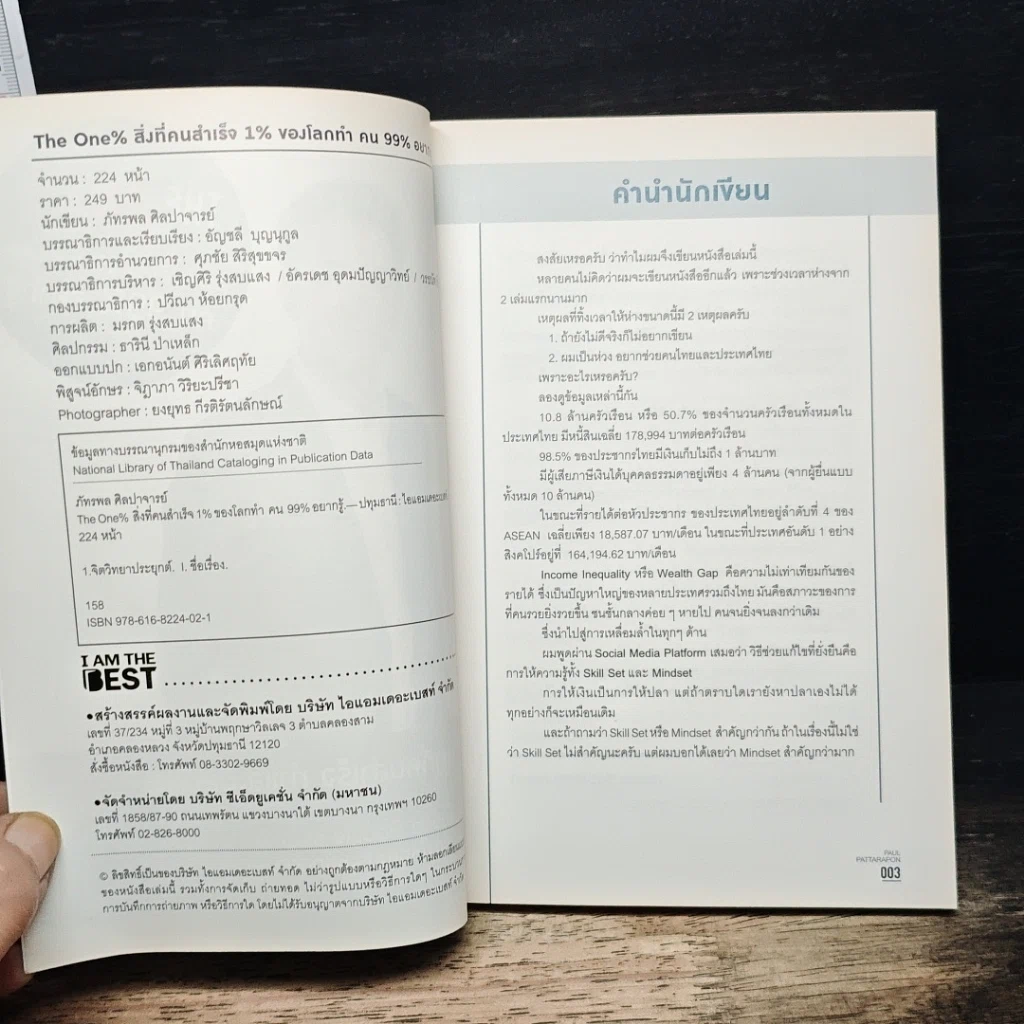 The One% สิ่งที่คนสำเร็จ 1% ของโลกทำ คน 99%
จำนวน : 224 หน้า
ราคา : 249 บาท
นักเขียน : ภัทรพล ศิลปาจารย์
บรรณาธิการและเรียบเรียง : อัญชลี บุญนุกูล
บรรณาธิการอำนวยการ : ศุภชัย สิริสุขขจร
บรรณาธิการบริหาร : เชิญศิริ รุ่งสบแสง / อัครเดช อุดมปัญญาวิทย์ /
กองบรรณาธิการ : ปวีณา ห้อยกรุด
การผลิต : มรกต รุ่งสบแสง
ศิลปกรรม : ธารินี ป่าเหล็ก
ออกแบบปก : เอกอนันต์ ศิริเลิศฤทัย
พิสูจน์อักษร : จิฎาภา วิริยะปรีชา
Photographer : ยงยุทธ กีรติรัตนลักษณ์
ข้อมูลทางบรรณานุกรมของสำนักหอสมุดแห่งชาติ
National Library of Thailand Cataloging in Publication Data
ภัทรพล ศิลปาจารย์
The One% สิ่งที่คนสำเร็จ 1% ของโลกทำ คน 99% อยากรู้.—ปทุมธานี : ไอแอมเดอะเบสท์
224 หน้า
1.จิตวิทยาประยุกต์. I. ชื่อเรื่อง.
158
ISBN 978-616-8224-02-1
I AM THE
BEST
•สร้างสรรค์ผลงานและจัดพิมพ์โดย บริษัท ไอแอมเดอะเบสท์ จำกัด
เลขที่ 37/234 หมู่ที่ 3 หมู่บ้านพฤกษาวิลเลจ 3 ตำบลคลองสาม
อำเภอคลองหลวง จังหวัดปทุมธานี 12120
สั่งซื้อหนังสือ : โทรศัพท์ 08-3302-9669
•จัดจำหน่ายโดย บริษัท ซีเอ็ดยูเคชั่น จำกัด (มหาชน)
เลขที่ 1858/87-90 ถนนเทพรัตน แขวงบางนาใต้ เขตบางนา กรุงเทพฯ 10260
โทรศัพท์ 02-826-8000
© ลิขสิทธิ์เป็นของบริษัท ไอแอมเดอะเบสท์ จำกัด อย่างถูกต้องตามกฎหมาย ห้ามลอกเลียน
ของหนังสือเล่มนี้ รวมทั้งการจัดเก็บ ถ่ายทอด ไม่ว่ารูปแบบหรือวิธีการใดๆ
การบันทึกการถ่ายภาพ หรือวิธีการใด โดยไม่ได้รับอนุญาตจากบริษัท ไอแอมเดอะเบสท์ จำกัด
คำนำนักเขียน
สงสัยเหรอครับ ว่าทำไมผมจึงเขียนหนังสือเล่มนี้
หลายคนไม่คิดว่าผมจะเขียนหนังสืออีกแล้ว เพราะช่วงเวลาห่างจาก
2 เล่มแรกนานมาก
เหตุผลที่ทิ้งเวลาให้ห่างขนาดนี้มี 2 เหตุผลครับ
1. ถ้ายังไม่ดีจริงก็ไม่อยากเขียน
2. ผมเป็นห่วง อยากช่วยคนไทยและประเทศไทย
เพราะอะไรเหรอครับ?
ลองดูข้อมูลเหล่านี้กัน
10.8 ล้านครัวเรือน หรือ 50.7% ของจำนวนครัวเรือนทั้งหมดใน
ประเทศไทย มีหนี้สินเฉลี่ย 178,994 บาทต่อครัวเรือน
98.5% ของประชากรไทยมีเงินเก็บไม่ถึง 1 ล้านบาท
มีผู้เสียภาษีเงินได้บุคคลธรรมดาอยู่เพียง 4 ล้านคน (จากผู้ยื่นแบบ
ทั้งหมด 10 ล้านคน)
ในขณะที่รายได้ต่อหัวประชากร ของประเทศไทยอยู่ลำดับที่ 4 ของ
ASEAN เฉลี่ยเพียง 18,587.07 บาท/เดือน ในขณะที่ประเทศอันดับ 1 อย่าง
สิงคโปร์อยู่ที่ 164,194.62 บาท/เดือน
Income Inequality หรือ Wealth Gap คือความไม่เท่าเทียมกันของ
รายได้ ซึ่งเป็นปัญหาใหญ่ของหลายประเทศรวมถึงไทย มันคือสภาวะของการ
ที่คนรวยยิ่งรวยขึ้น ชนชั้นกลางค่อย ๆ หายไป คนจนยิ่งจนลงกว่าเดิม
ซึ่งนำไปสู่การเหลื่อมล้ำในทุกๆ ด้าน
ผมพูดผ่าน Social Media Platform เสมอว่า วิธีช่วยแก้ไขที่ยั่งยืนคือ
การให้ความรู้ทั้ง Skill Set และ Mindset
การให้เงินเป็นการให้ปลา แต่ถ้าตราบใดเรายังหาปลาเองไม่ได้
ทุกอย่างก็จะเหมือนเดิม
และถ้าถามว่า Skill Set หรือ Mindset สำคัญกว่ากัน ถ้าในเรื่องนี้ไม่ใช่
ว่า Skill Set ไม่สำคัญนะครับ แต่ผมบอกได้เลยว่า Mindset สำคัญกว่ามาก
PAUL
PATTARAPON
003